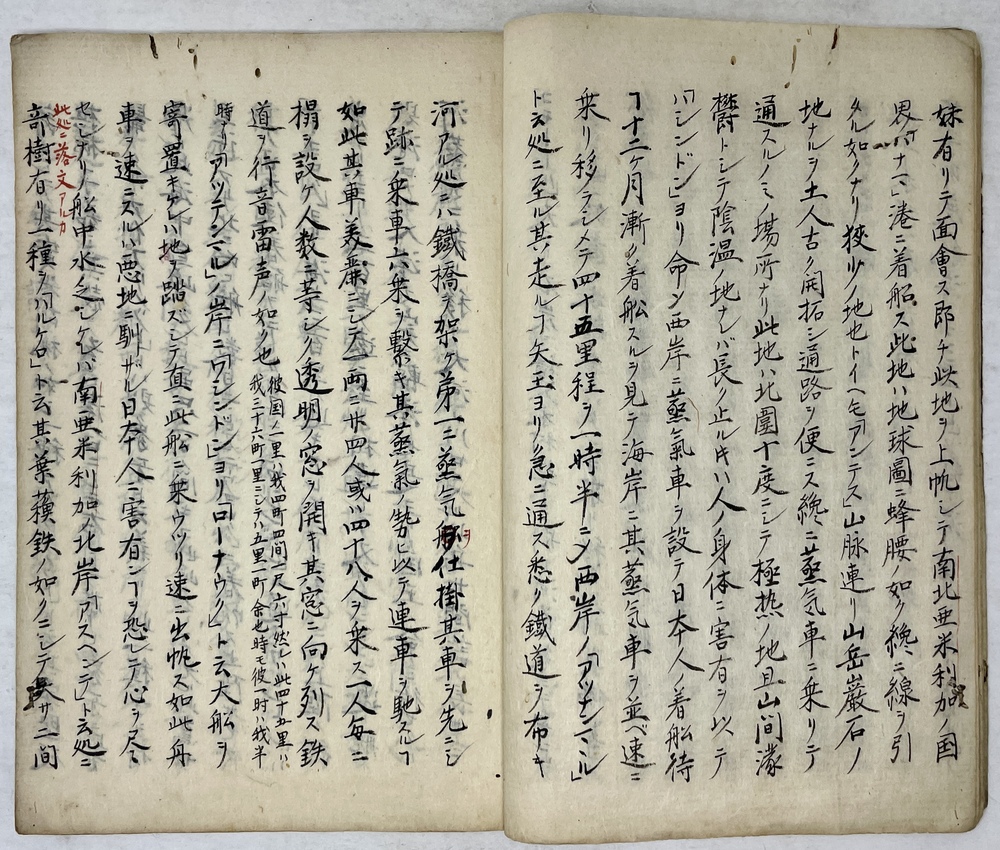 妹有リテ面會ス即チ此地ヲ上帆シテ南北亜米利加ノ国
界「パナマ」港ニ着船ス此地ハ地球圖ニ蜂腰ノ如ク纔ニ線ヲ引
タル如クナリ狹少ノ地也トイヘ𪜈「アンテス」山脉連リ山岳巖石ノ
地ナルヲ土人古ク開拓シ通路ヲ便ニス纔ニ蒸気車ニ乗リテ
通スルノミノ場所ナリ此地ハ北圍十度ニシテ極热ノ地且山間濛
欝トシテ陰温ノ地ナレバ長ク止ル𪜈ハ人ノ身体ニ害有ヲ以テ
「ワシンドン」ヨリ命シ西岸ニ蒸氣車ヲ設テ日本人ノ着船待
ヿ十二ケ月漸ク着船スルヲ見テ海岸ニ其蒸氣車ヲ並ベ速ニ
乗リ移ラシメテ四十五里程ヲ一時半ニ〆西岸ノ「アツテンマール」
ト云処ニ至ル其走ルヿ矢玉ヨリ急ニ通ス悉ク鐵道ヲ布キ
河アル処ニハ鐵橋ヲ架ケ第一ニ蒸気ヲ仕掛其車ヲ先ニシ
テ跡ニ乗車六乗ヲ繋キ其蒸氣ノ勢ヒ以テ連車ヲ馳スルヿ
如此其車美麗ニシテ一両ニ廿四人或ハ四十八人ヲ乗ス一人毎ニ
榻ヲ設ケ人数ニ等シク透明ノ窓ヲ開キ其窓ニ向ケ列ス鉄
道ヲ行ト音雷声ノ如ク也
彼国ノ一里ハ我四町四間一尺六寸然レハ此四十五里ハ
我三十六町一里ニシテハ五里一町余也時モ彼一时ハ我半
時ナリ「アツテンマール」ノ岸ニ「ワシンドン」ヨリ「ローナウク」ト云大船ヲ
寄セ置キケレハ地ヲ踏ズシテ直ニ此船ニ乗ウツリ速ニ出帆ス如此舟
車ヲ速ニスルハ悪地ニ馴サル日本人ニ害有ンヿヲ恐レテ心ヲ尽
セシナリ船中水乏シケレバ南亜米利加ノ北岸「アスヘンテ」ト云処ニ
此処ニ落文アルカ
奇樹有リ一種ヲ「ハルケロ」ト云其葉蘓鉄ノ如クニシテ長サ二間